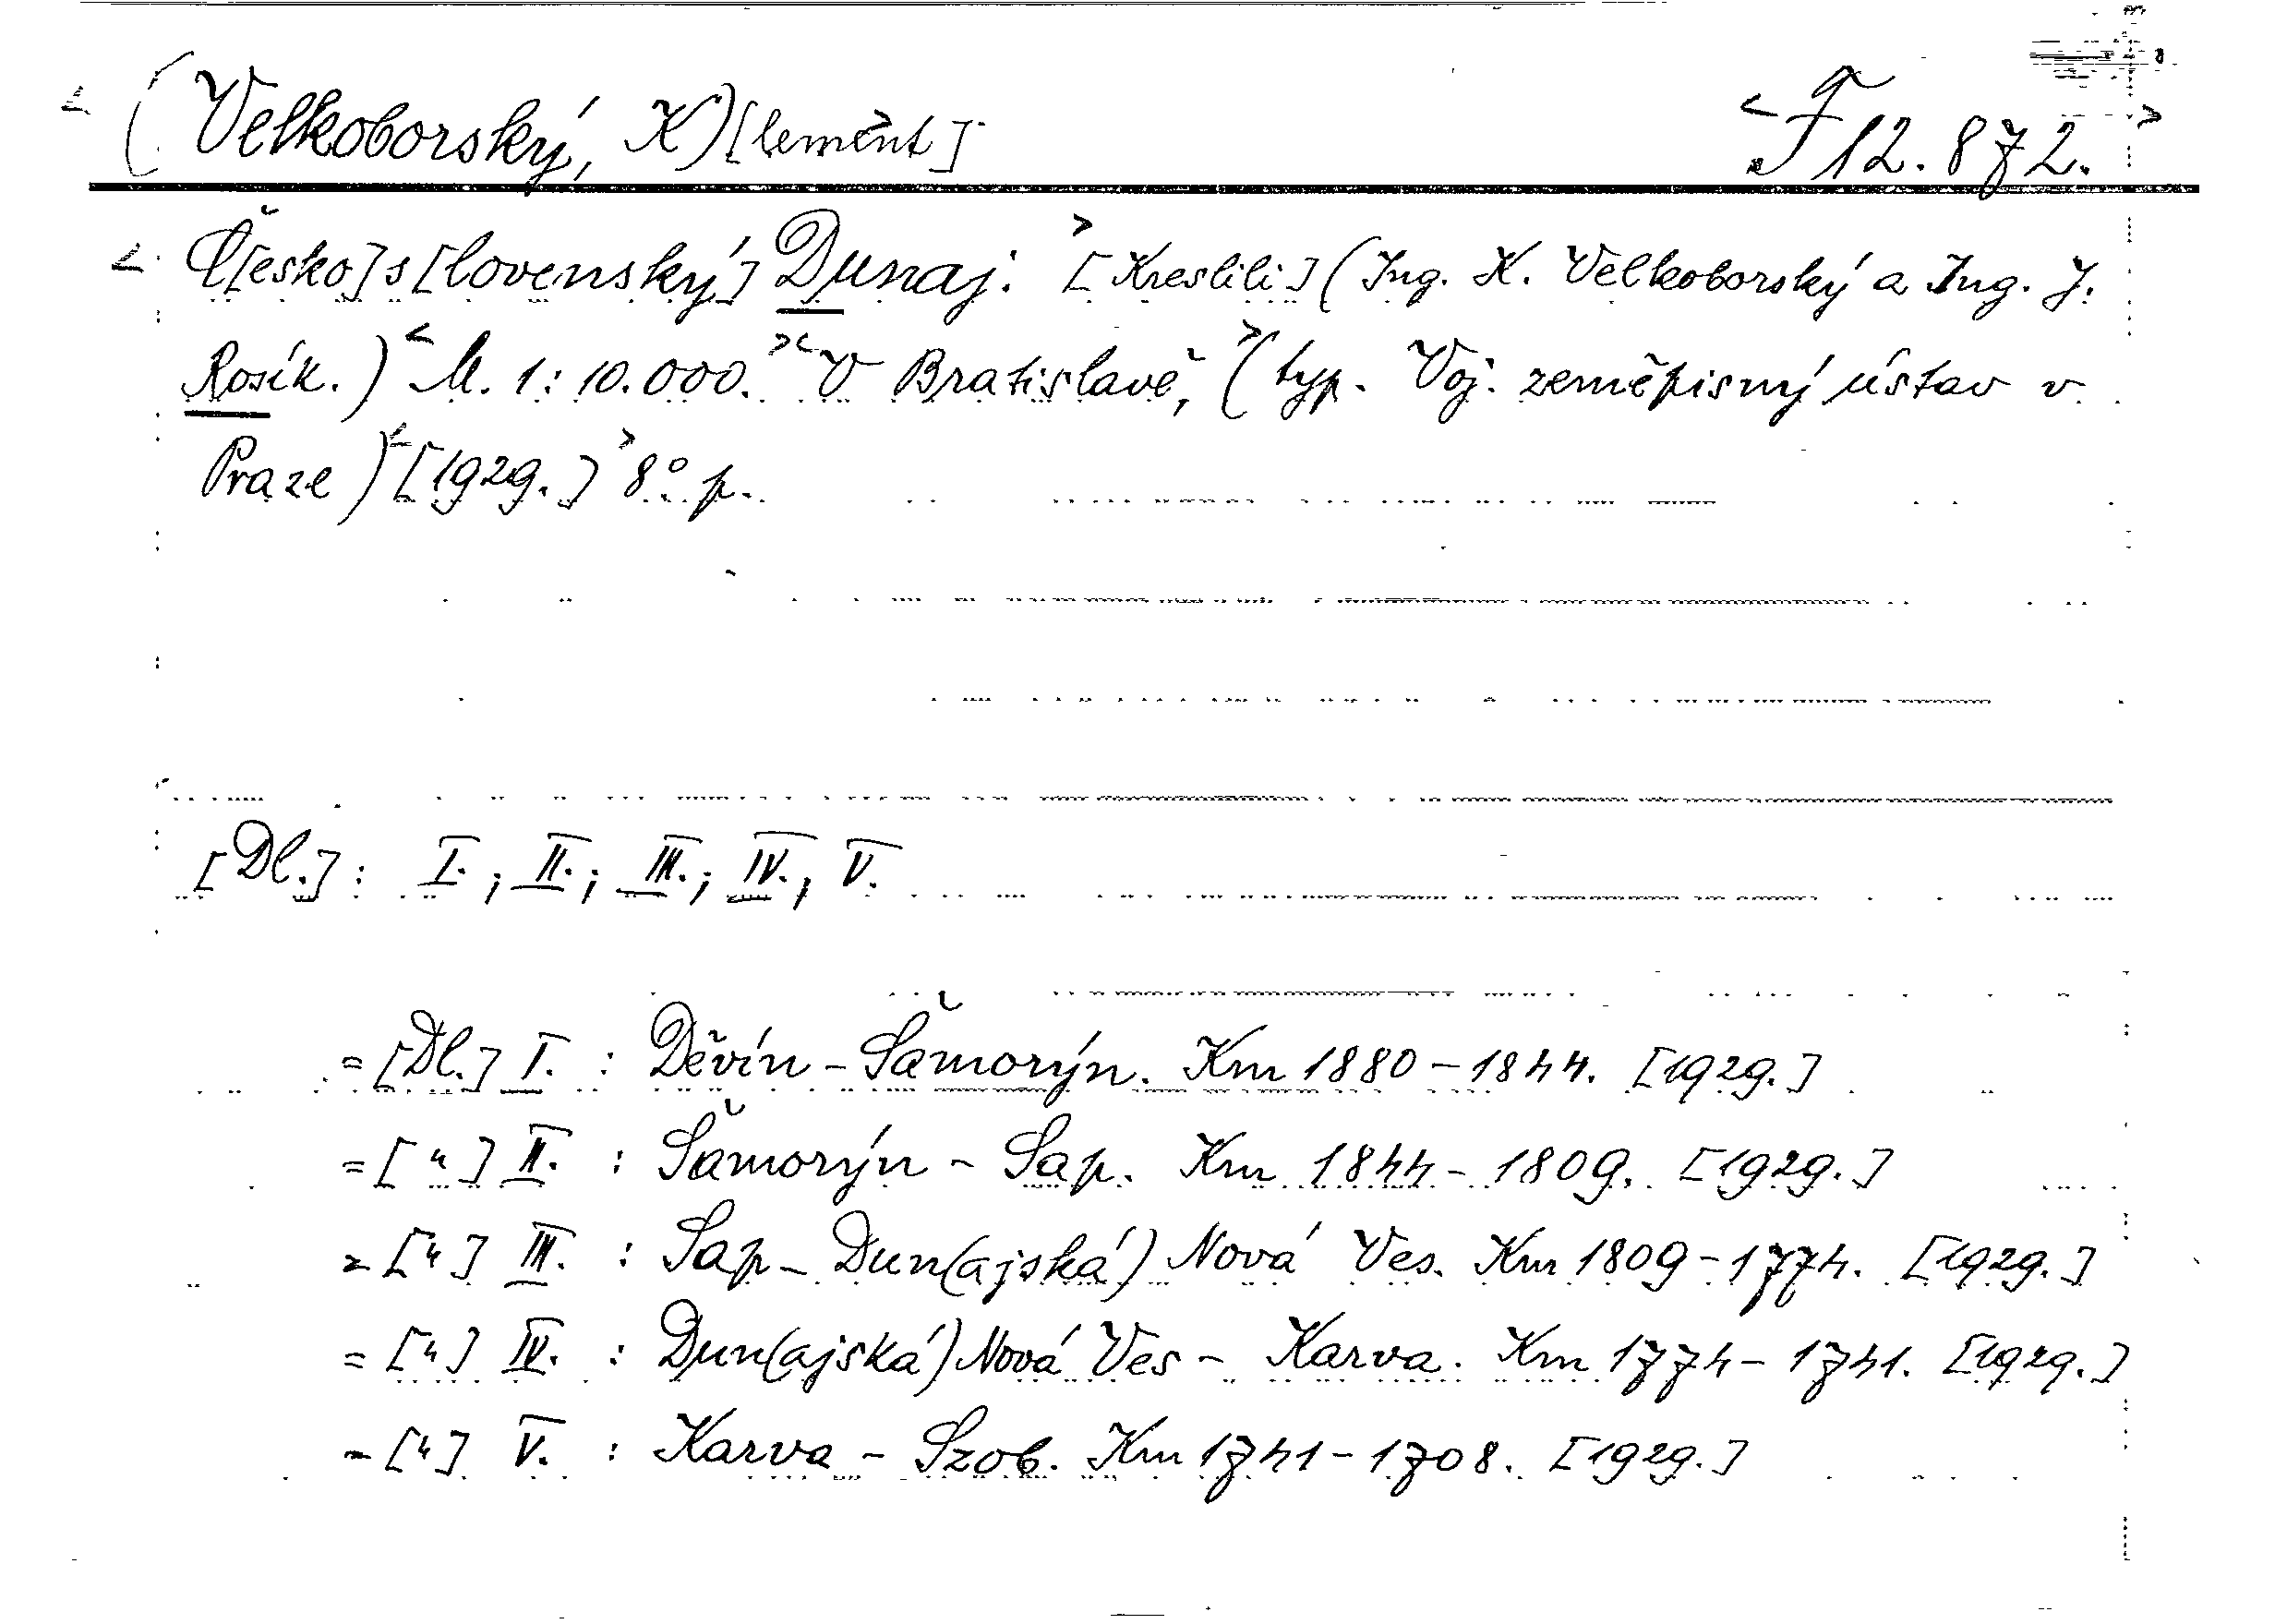 <(Velkoborský, K)[lement]> <F 12.872.>
<Č[esko]s[lovenský] Dunaj.> [Kreslili] (Ing. K. Velkoborský a Ing. J.
Rosík.) <M. 1:10.000.> <V Bratislavě,> (typ. Voj. zeměpisný ústav v
Praze) <[1929.]> 8° p.
[Dl.]: I.; II.; III.; IV., V.
= [Dl.] I. : Děvín - Šamorýn. Km 1880 - 1844. [1929.]
= ["] II. : Šamorýn - Sap. Km 1844 - 1809. [1929.]
= ["] III. : Sap - Dun(ajská) Nová Ves. Km 1809 - 1774. [1929.]
= ["] IV. : Dun(ajská) Nová Ves - Karva. Km 1774 - 1741. [1929.]
= ["] V. : Karva - Szob. Km 1741 - 1708. [1929.]